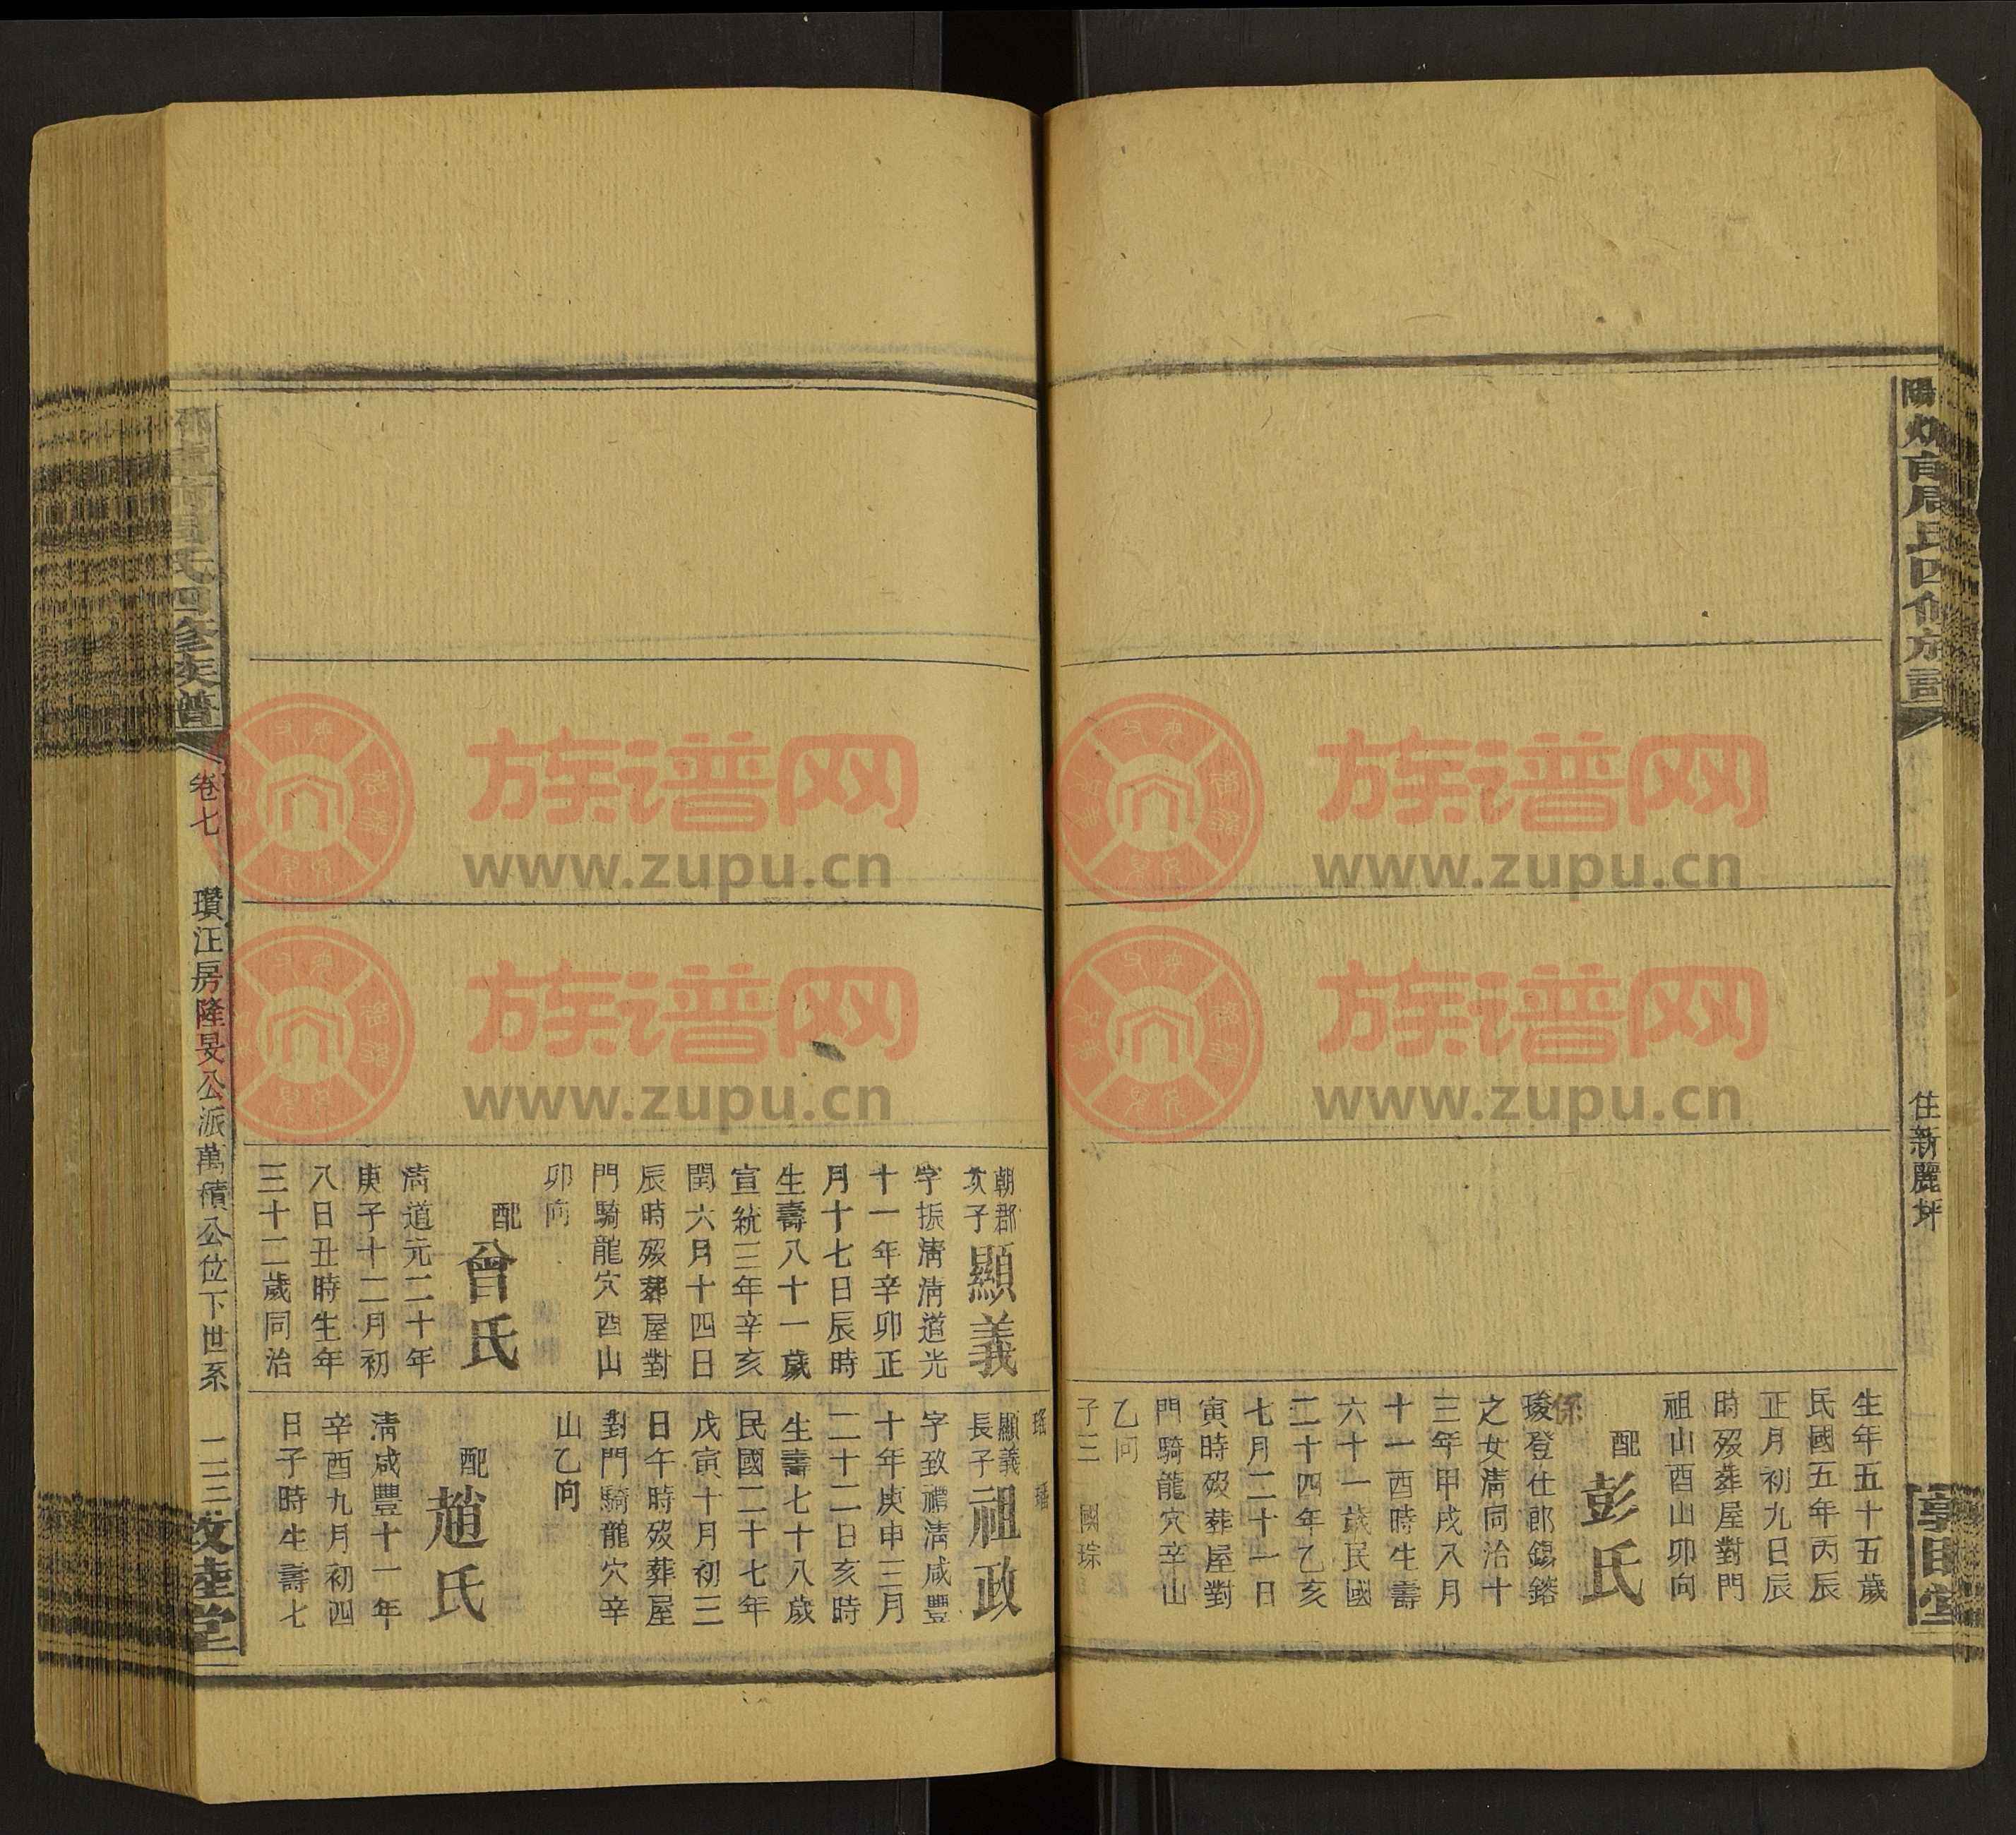 住新麗坪
生年五十五歲
民國五年丙辰
正月初九日辰
時歿葬屋對門
祖山酉山卯向
配
彭氏
係
璲登仕郎錫鎔
之女淸同治十
三年甲戌八月
十一酉時生壽
六十一歲民國
二十四年乙亥
七月二十一日
寅時歿葬屋對
門騎龍穴辛山
乙向
子三 國琮
瑤 璠
朝郡
次子
顯義
字振淸淸道光
十一年辛卯正
月十七日辰時
生壽八十一歲
宣統三年辛亥
閏六月十四日
辰時歿葬屋對
門騎龍穴酉山
卯向
配
曾氏
淸道元二十年
庚子十二月初
八日丑時生年
三十二歲同治
顯義
長子
祖政
字致禮淸咸豐
十年庚申三月
二十二日亥時
生壽七十八歲
民國二十七年
戊寅十月初三
日午時歿葬屋
對門騎龍穴辛
山乙向
配
趙氏
淸咸豐十一年
辛酉九月初四
日子時生壽七
氏四修族譜
卷七
瓚汪房隆旻公派萬積公位下世系
二三
族谱网
www.zupu.cn
族谱网
www.zupu.cn
族谱网
www.zupu.cn
族谱网
www.zupu.cn